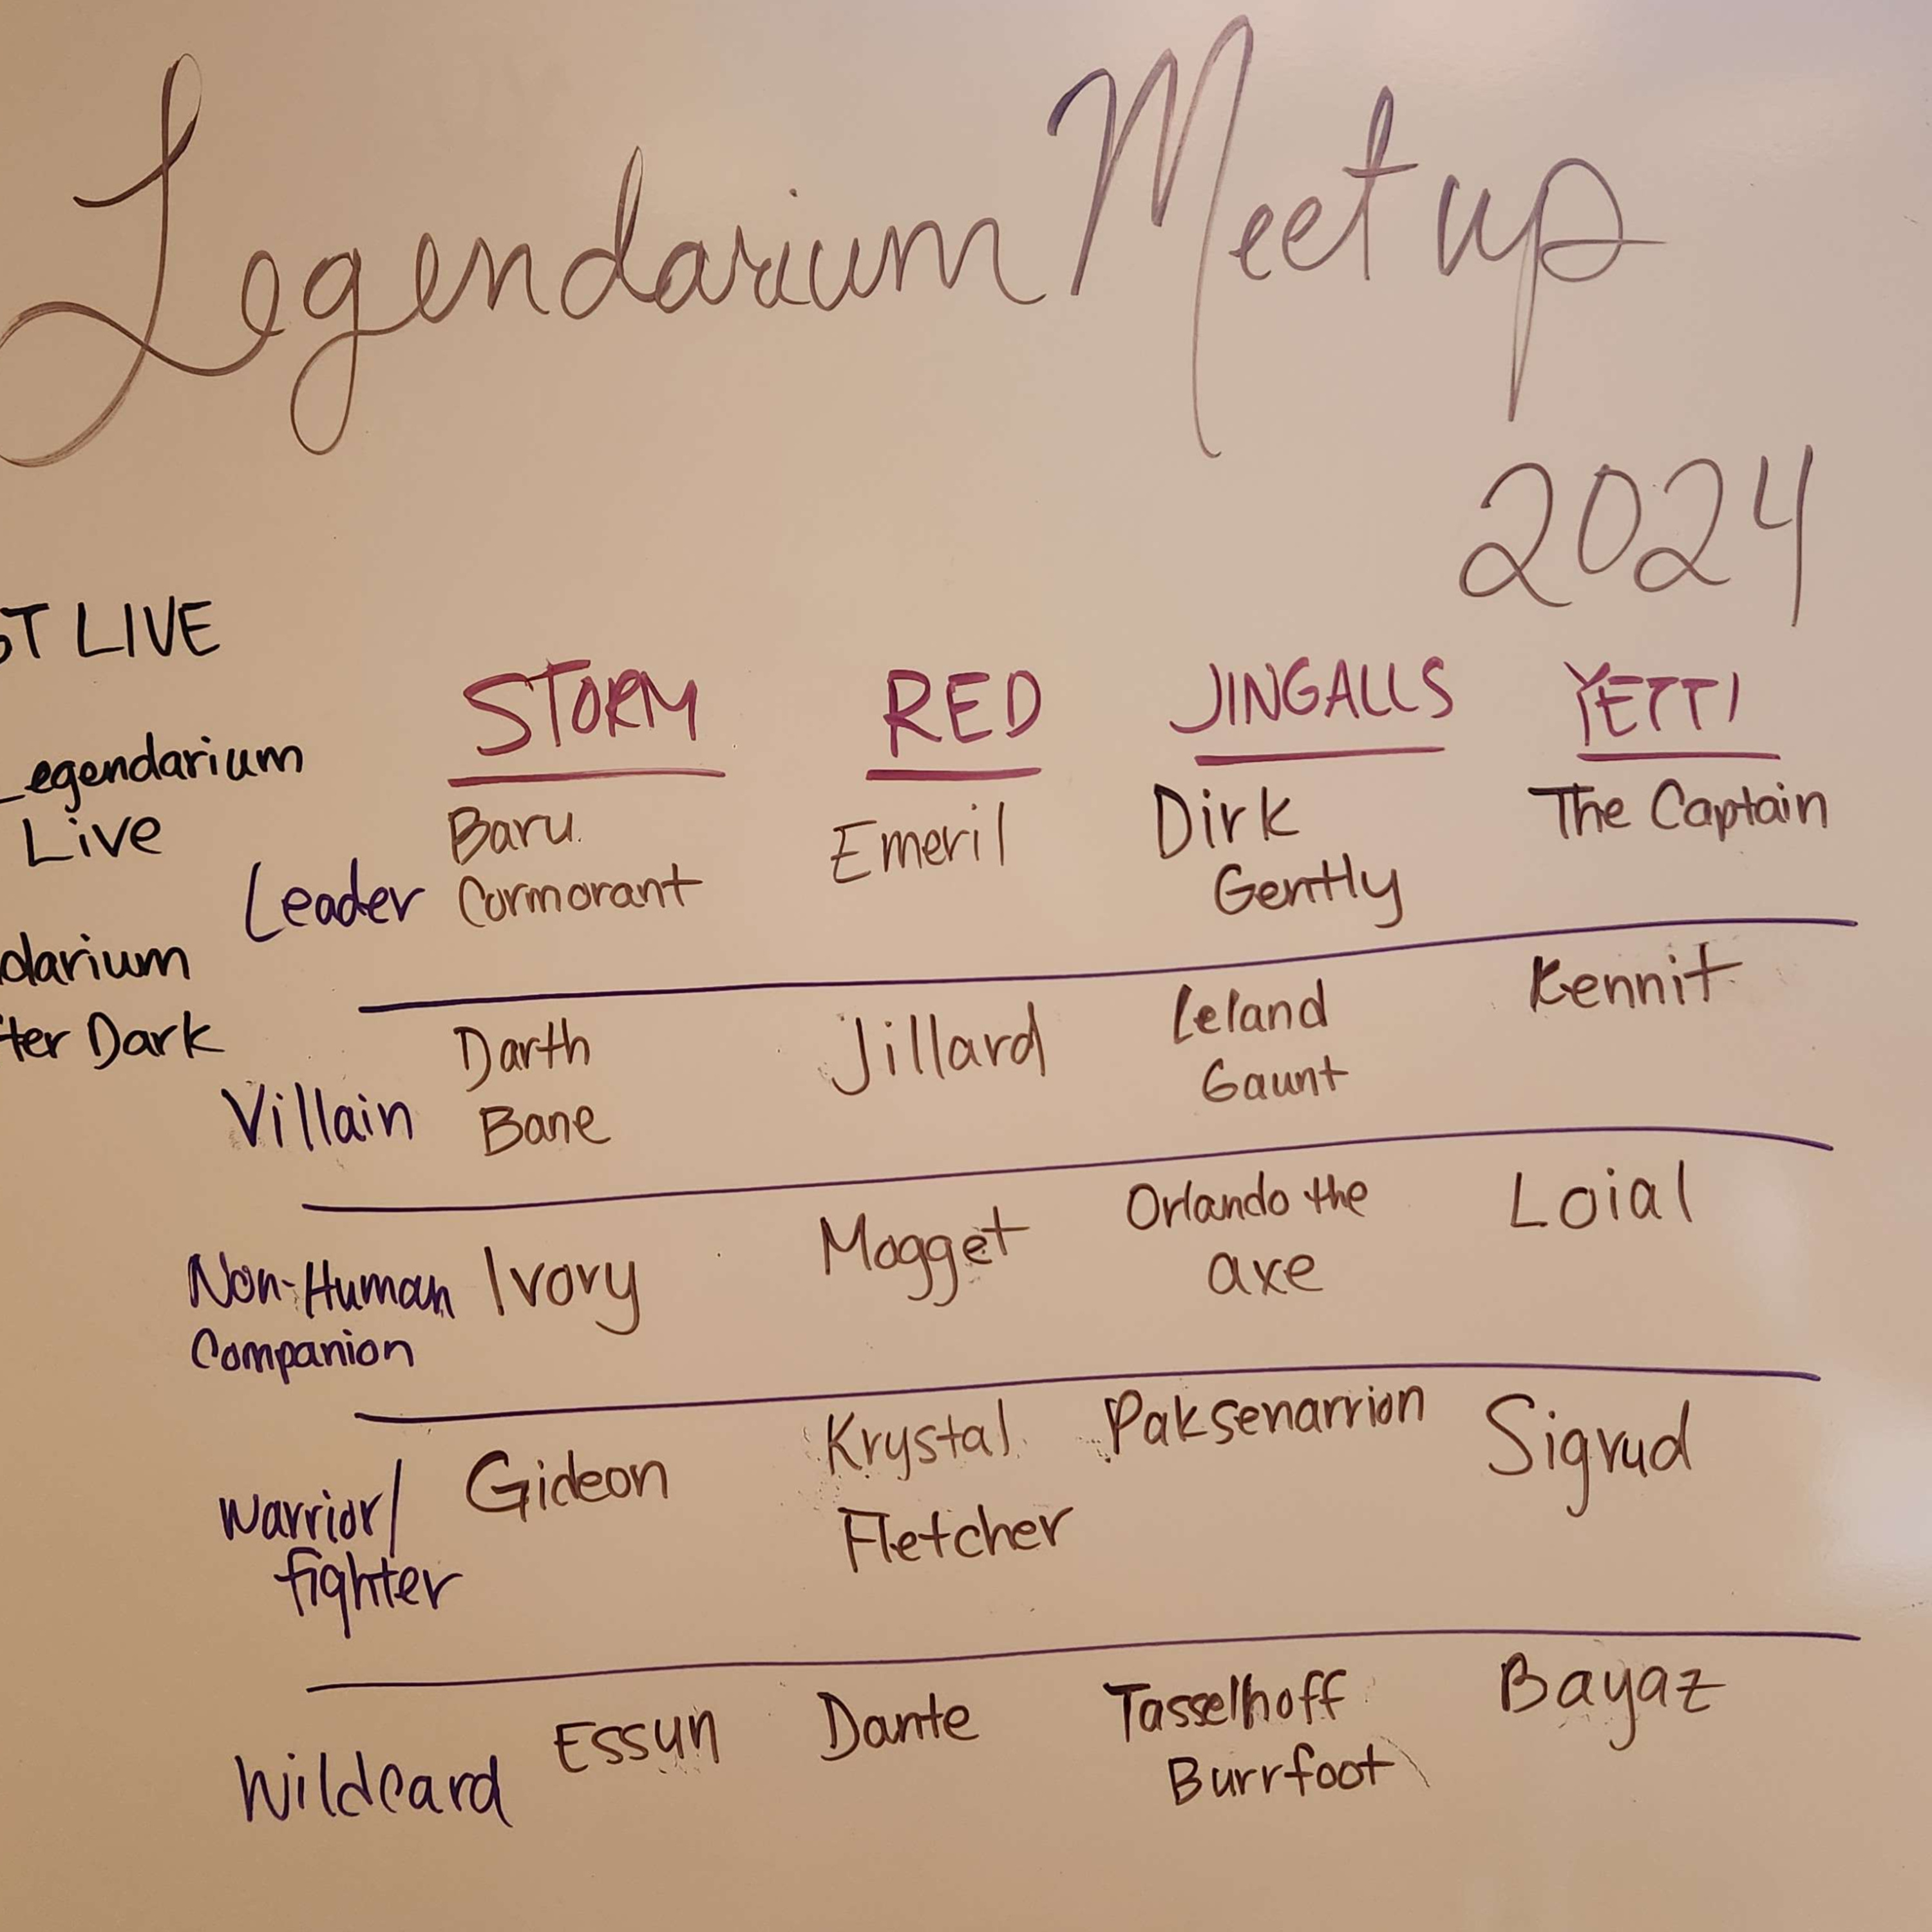 Legendarium Meet up
2024
T LIVE
Legendarium
Live
darium
ter Dark
STORM RED JINGALLS YETTI
Leader Baru Cormorant Emeril Dirk Gently The Captain
Villain Darth Bane Jillard Leland Gaunt Kennit
Non-Human Companion Ivory Mogget Orlando the axe Loial
Warrior/ fighter Gideon Krystal Fletcher Paksenarrion Sigrud
Wildcard Essun Dante Tasselhoff Burrfoot Bayaz